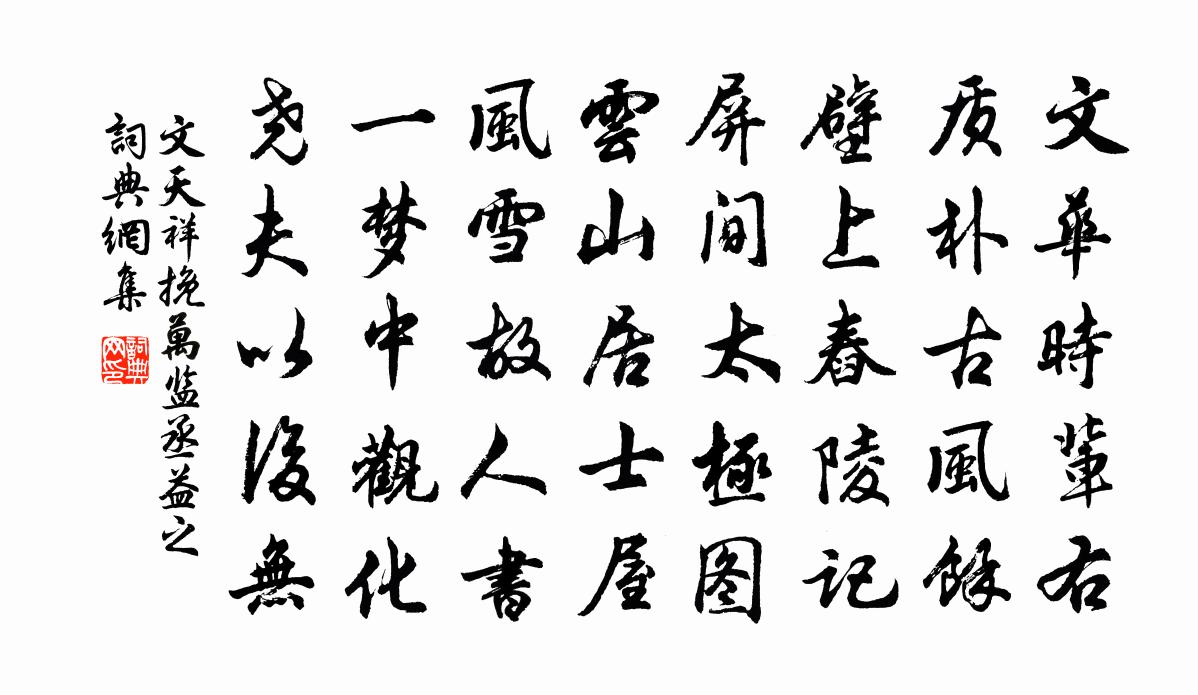 文華時輩右
质朴古風餘
壁上舂陵记
屏间太極图
雲山居士屋
風雪故人書
一梦中觀化
尧夫以後無
文天祥挽萬监丞益之
詞典網集
詞典网印